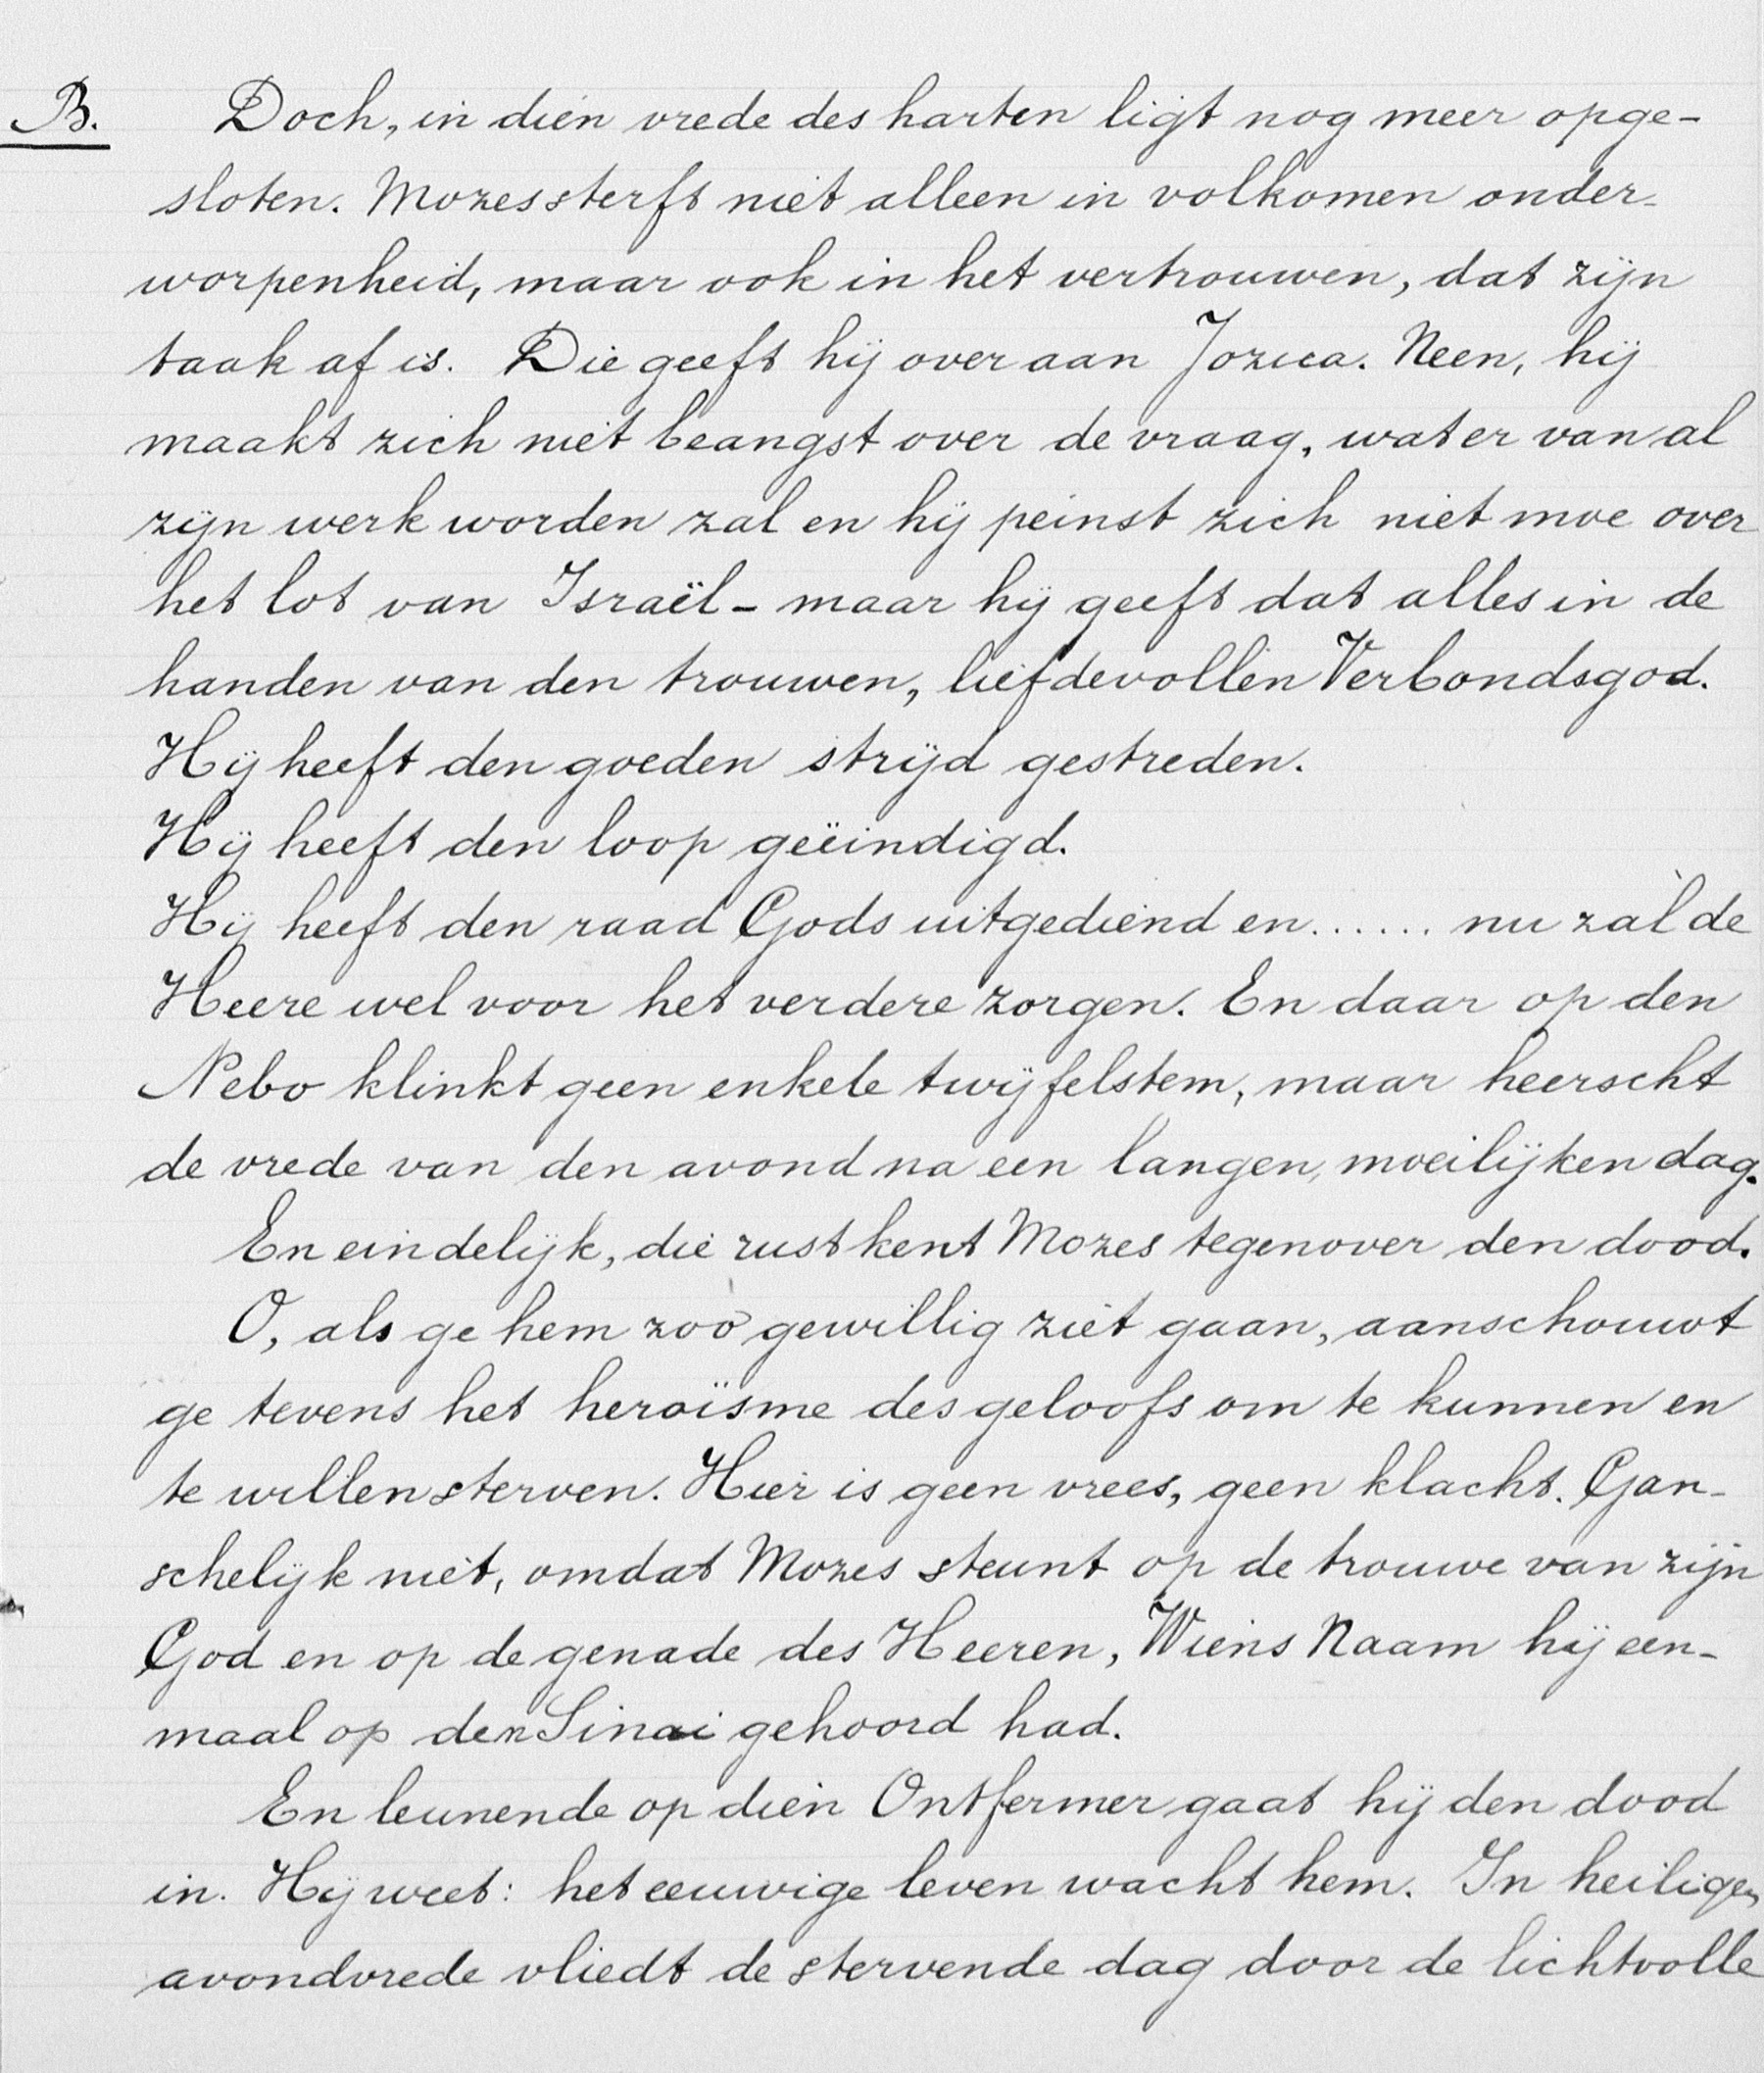 B. Doch, in dien vrede des harten ligt nog meer opge-
sloten. Mozes sterft niet alleen in volkomen onder-
worpenheid, maar ook in het vertrouwen, dat zijn
taak af is. Die geeft hij over aan Jozua. Neen, hij
maakt zich niet beangst over de vraag, wat er van al
zijn werk worden zal en hij peinst zich niet moe over
het lot van Israël - maar hij geeft dat alles in de
handen van den trouwen, liefdevollen Verbondsgod.
Hij heeft den goeden strijd gestreden.
Hij heeft den loop geëindigd.
Hij heeft den raad Gods uitgediend en...... nu zàl de
Heere wel voor het verdere zorgen. En daar op den
Nebo klinkt geen enkele twijfelstem, maar heerscht
de vrede van den avond na een langen, moeilijken dag.
En eindelijk, die rust kent Mozes tegenover den dood.
O, als ge hem zoo gewillig ziet gaan, aanschouwt
ge tevens het heroïsme des geloofs om te kunnen en
te willen sterven. Hier is geen vrees, geen klacht. Gan-
schelijk niet, omdat Mozes steunt op de trouwe van zijn
God en op de genade des Heeren, Wiens Naam hij een-
maal op den Sinai gehoord had.
En leunende op dien Ontfermer gaat hij den dood
in. Hij weet: het eeuwige leven wacht hem. In heiligen
avondvrede vliedt de stervende dag door de lichtvolle